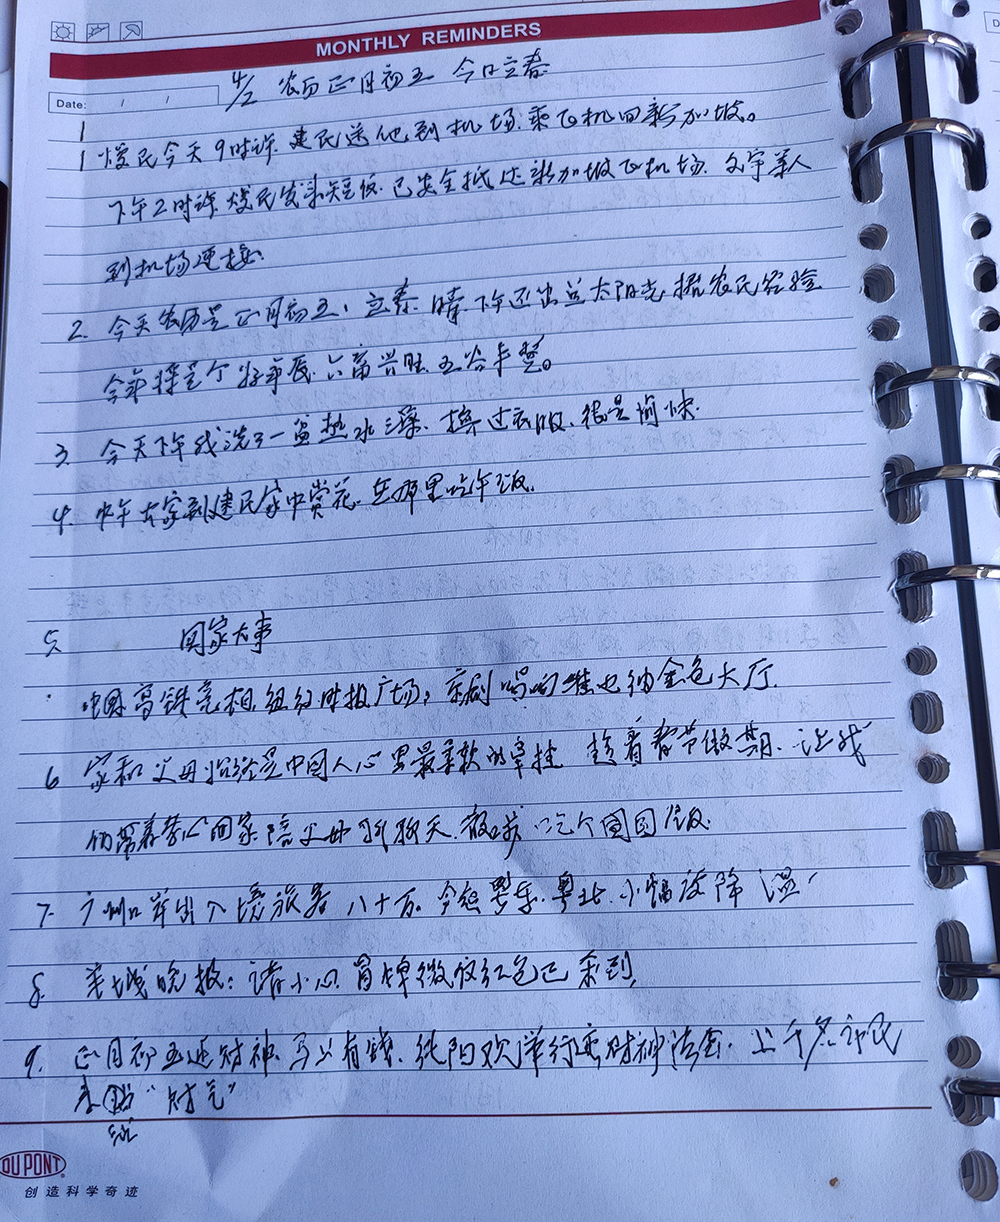 MONTHLY REMINDERS
Date: / /
4/2 农历正月初五 今日立春
1 煖民今天9时许.建民送他到机场.乘飞机回新加坡。
下午2时许.煖民发来短信.已安全抵达新加坡飞机场.文宇等人
到机场迎接.
2. 今天农历是正月初五,立春.晴.下午还出点太阳光.据农民经验
今年将是个好年辰.六畜兴旺.五谷丰登。
3. 今天下午我洗了一出热水澡.换过衣服、很是愉快.
4. 中午大家到建民家中赏花.在那里吃午饭.
5. 国家大事
·中国高铁亮相纽约时报广场,京剧唱响维也纳金色大厅.
6 家和父母始终是中国人心里最柔软的牵挂 趁着春节假期.让我
们带着爱心回家.陪父母聊聊天.散步.吃个团圆饭.
7. 广州口岸出入境旅客八十万.今起粤东.粤北.小幅度降温
8. 羊城晚报:请小心.冒牌微信红包已来到.
9. 正月初五迎财神.马上有钱.纯阳观举行迎财神法会.上千名市民
来沾“财气”
DU PONT
创造科学奇迹